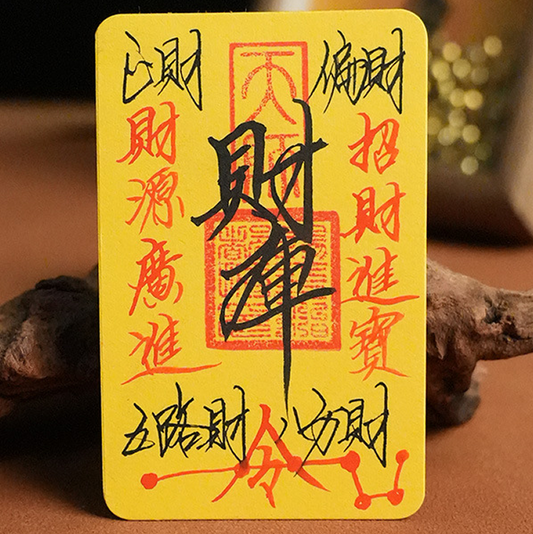 正財
偏財
天師
財庫
招財進寶
財源廣進
五路財
八方財
令